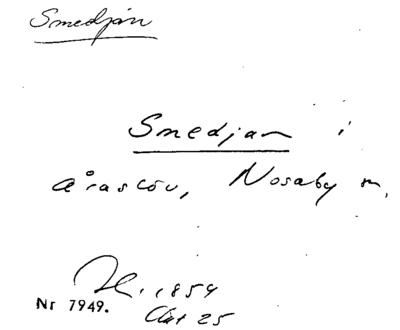 Smedjan
Smedjan i
Åraslöv, Nosaby sn.
H. 1854
Nr 7949.
Akt 25